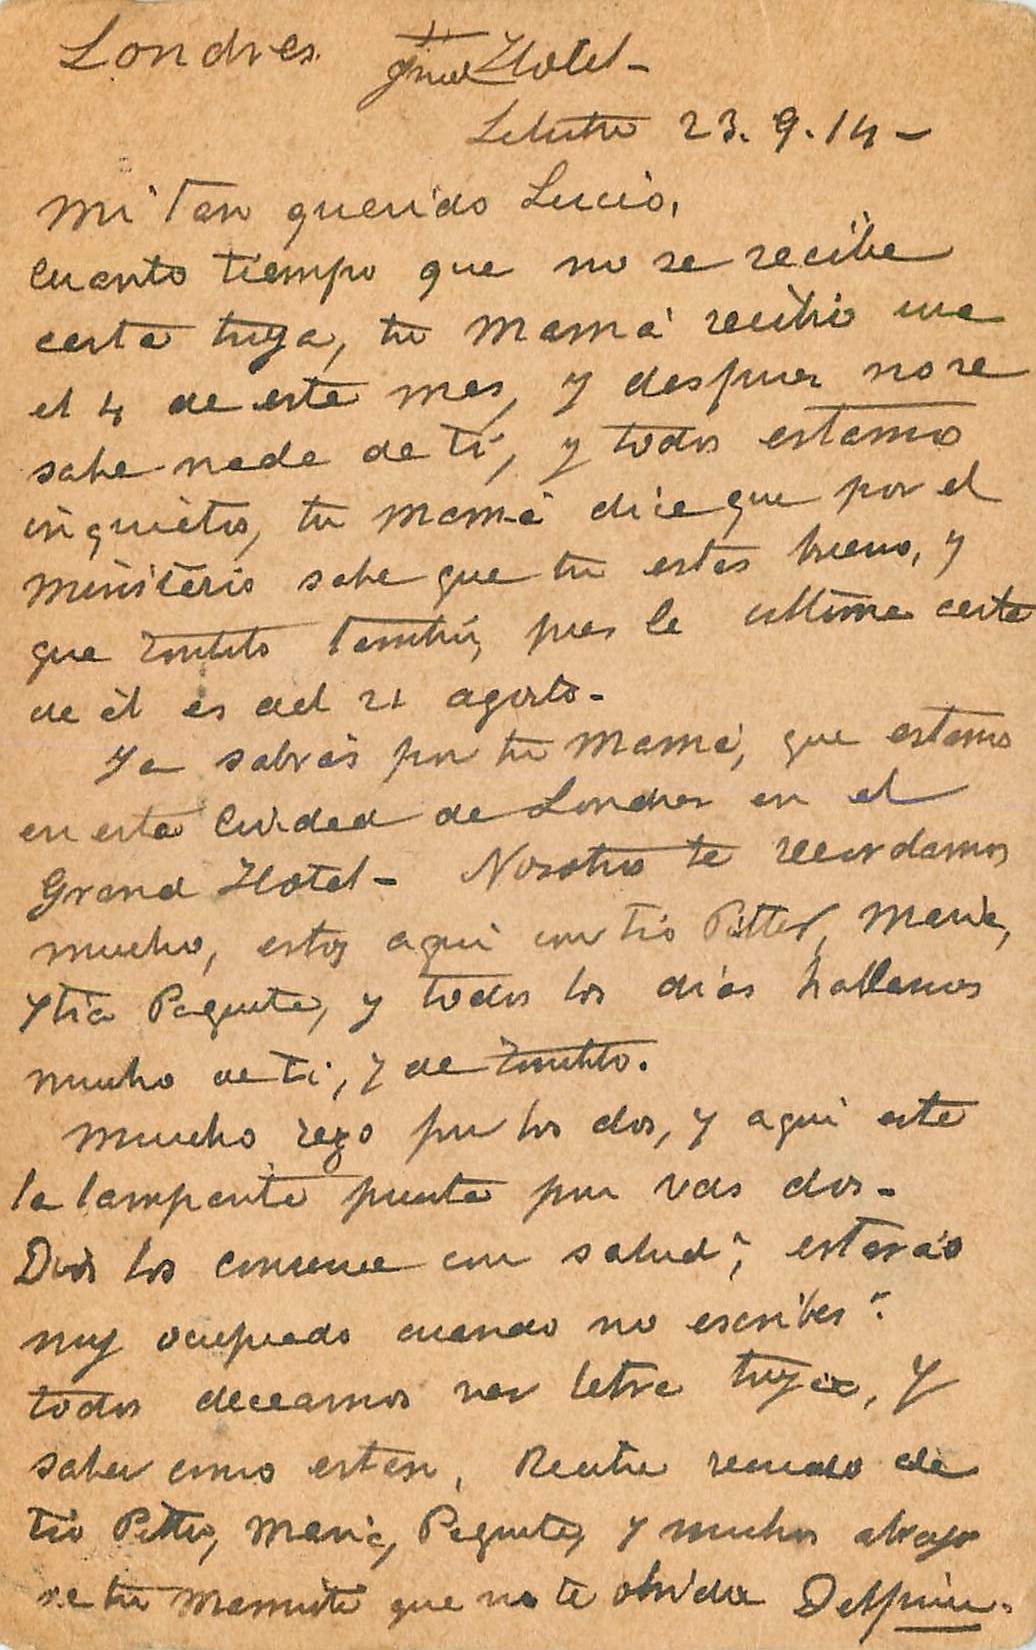 Londres. Hotel-
23.9.14-
Mi Tan querido Lucio,
Cuanto tiempo que no se recibe
carta tuya, tu Mamá recibio una
el 4 de este mes, y despues no se
sabe nada de ti, y todos estamos
inquietos, tu mamá dice que por el
Ministerio sabe que tu estas bueno, y
que Tambien, pues la ultima carta
de él es del 21 agosto-
Ya sabrás por tu Mamá, que estamos
en esta Ciudad de Londres en el
Grand Hotel- Nosotros te recordamos
mucho, estoy aqui con tio Pitter, Maria,
y tia Paquita, y todos los dias hablamos
mucho de ti, y de
Mucho rezo por los dos, y aqui esta
la lamparita puesta por Vds dos-
Dios los conserve con salud, estarás
muy ocupado cuando no escribes?
todos deceamos ver letra tuya, y
saber como estan, Recibe recuerdo de
tio Pitter, Maria, Paquita, y muchos abrazos
de tu Mamita que no te olvida Delfina.